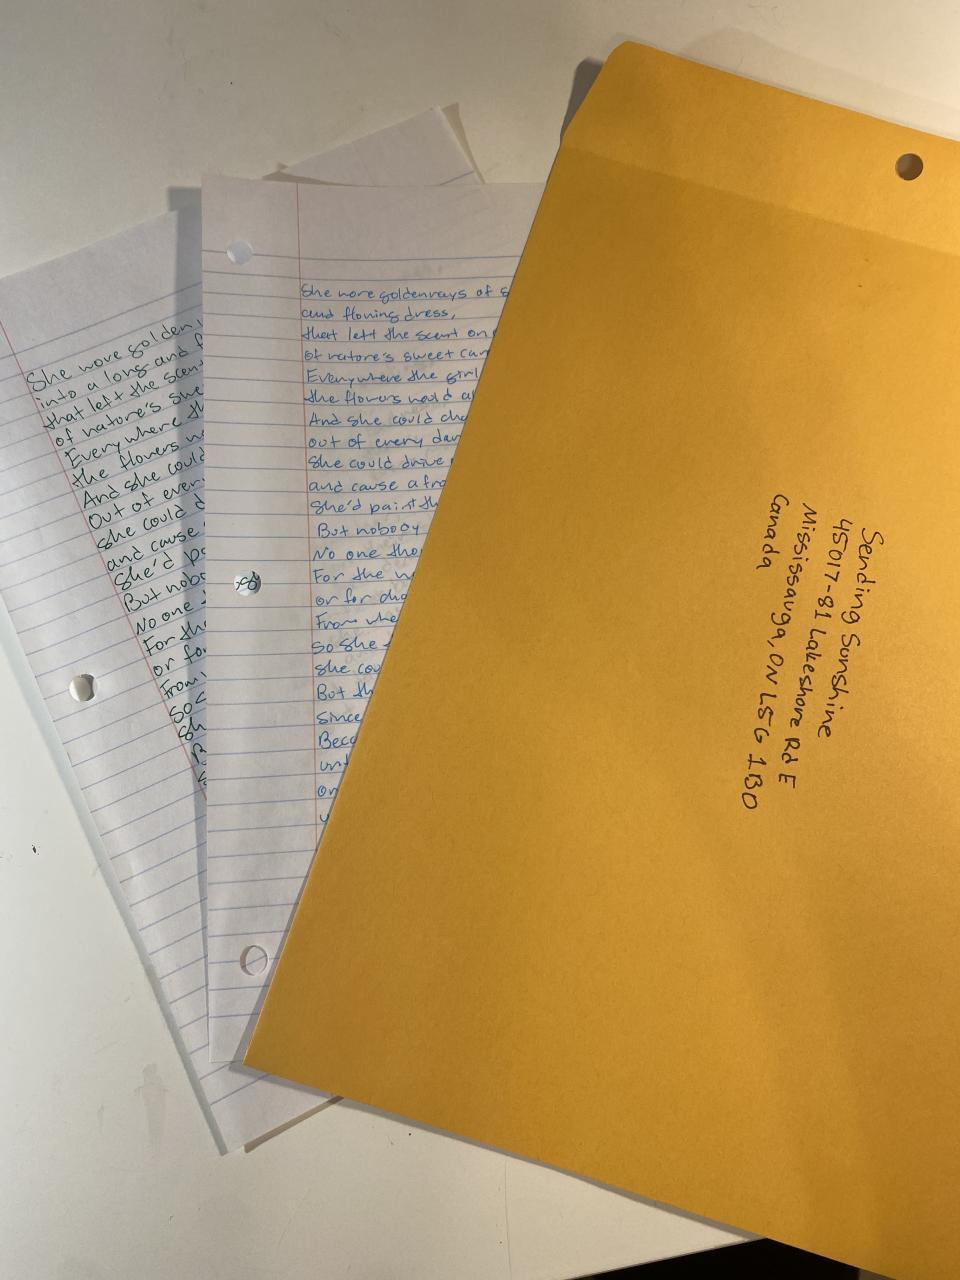 She wore golden
into a long and f
that left the scent
of nature's swe
Everywhere th
the flowers w
And she could
Out of ever
she could d
and cause
She'd pa
But nobo
No one t
For the
or for
From w
so s
sh
B
s
She wore goldenrays of s
and flowing dress,
that left the scent on
of nature's sweet car
Everywhere the girl
the flowers would al
And she could cha
out of every dar
she could drive
and cause a fro
She'd paint th
But nobody
No one tho
For the w
or for cha
From whe
So she t
she cou
But th
since
Beca
unt
or
u
Sending Sunshine
45017-81 Lakeshore Rd E
Mississauga, ON L5G 1B0
Canada